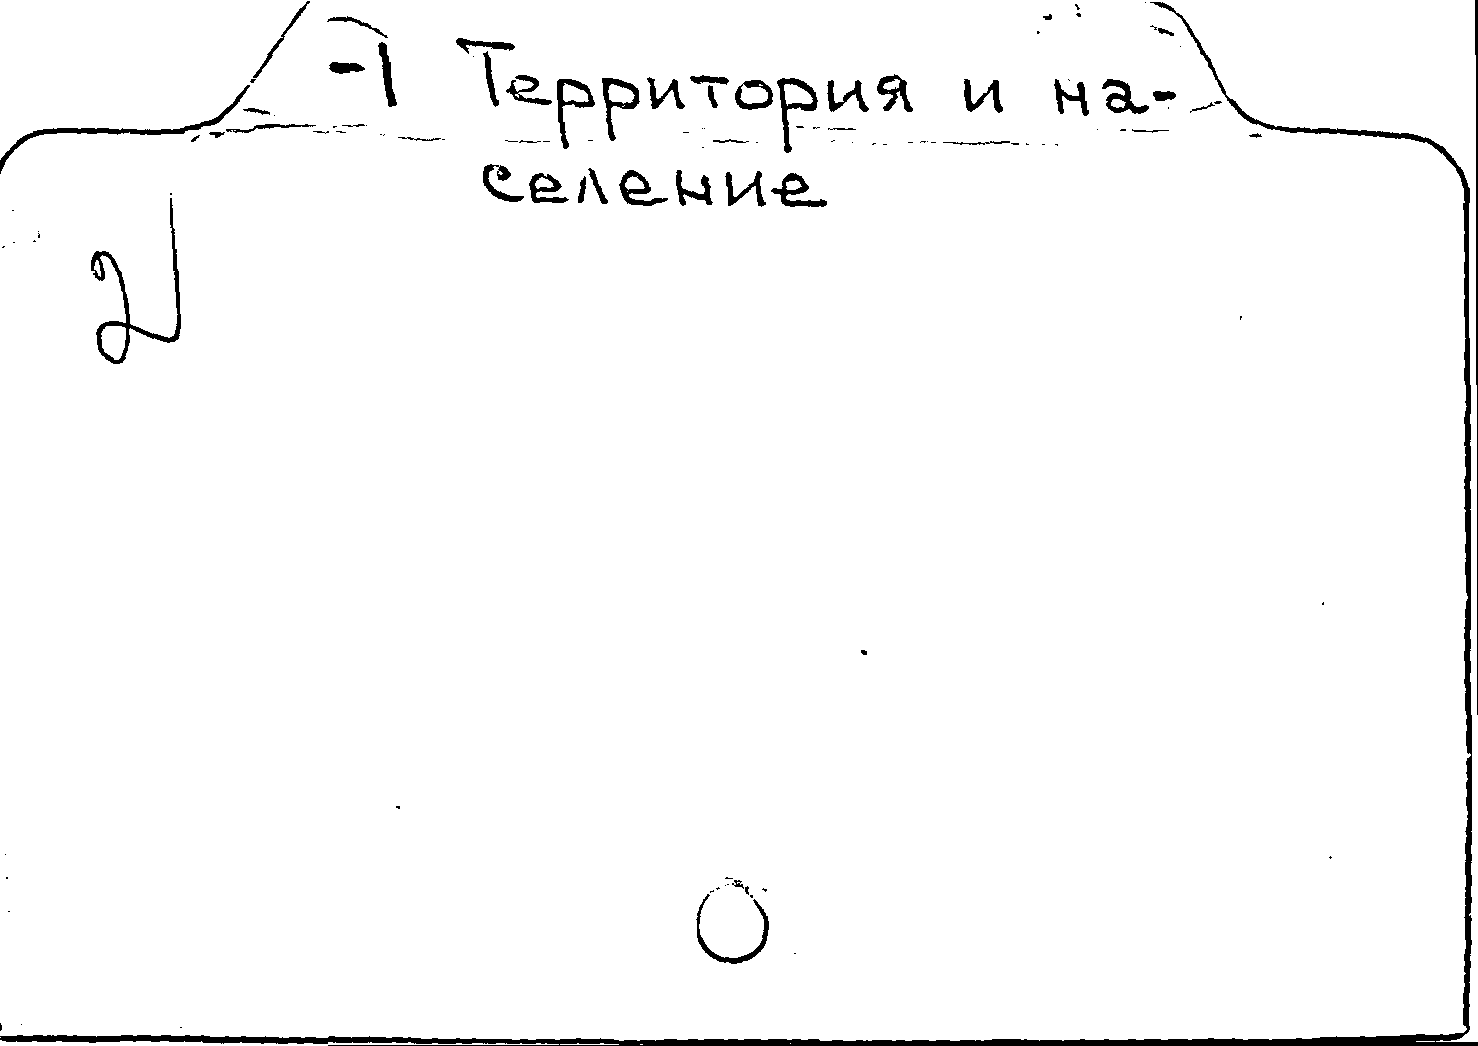 -1 Территория и на-
селение
2